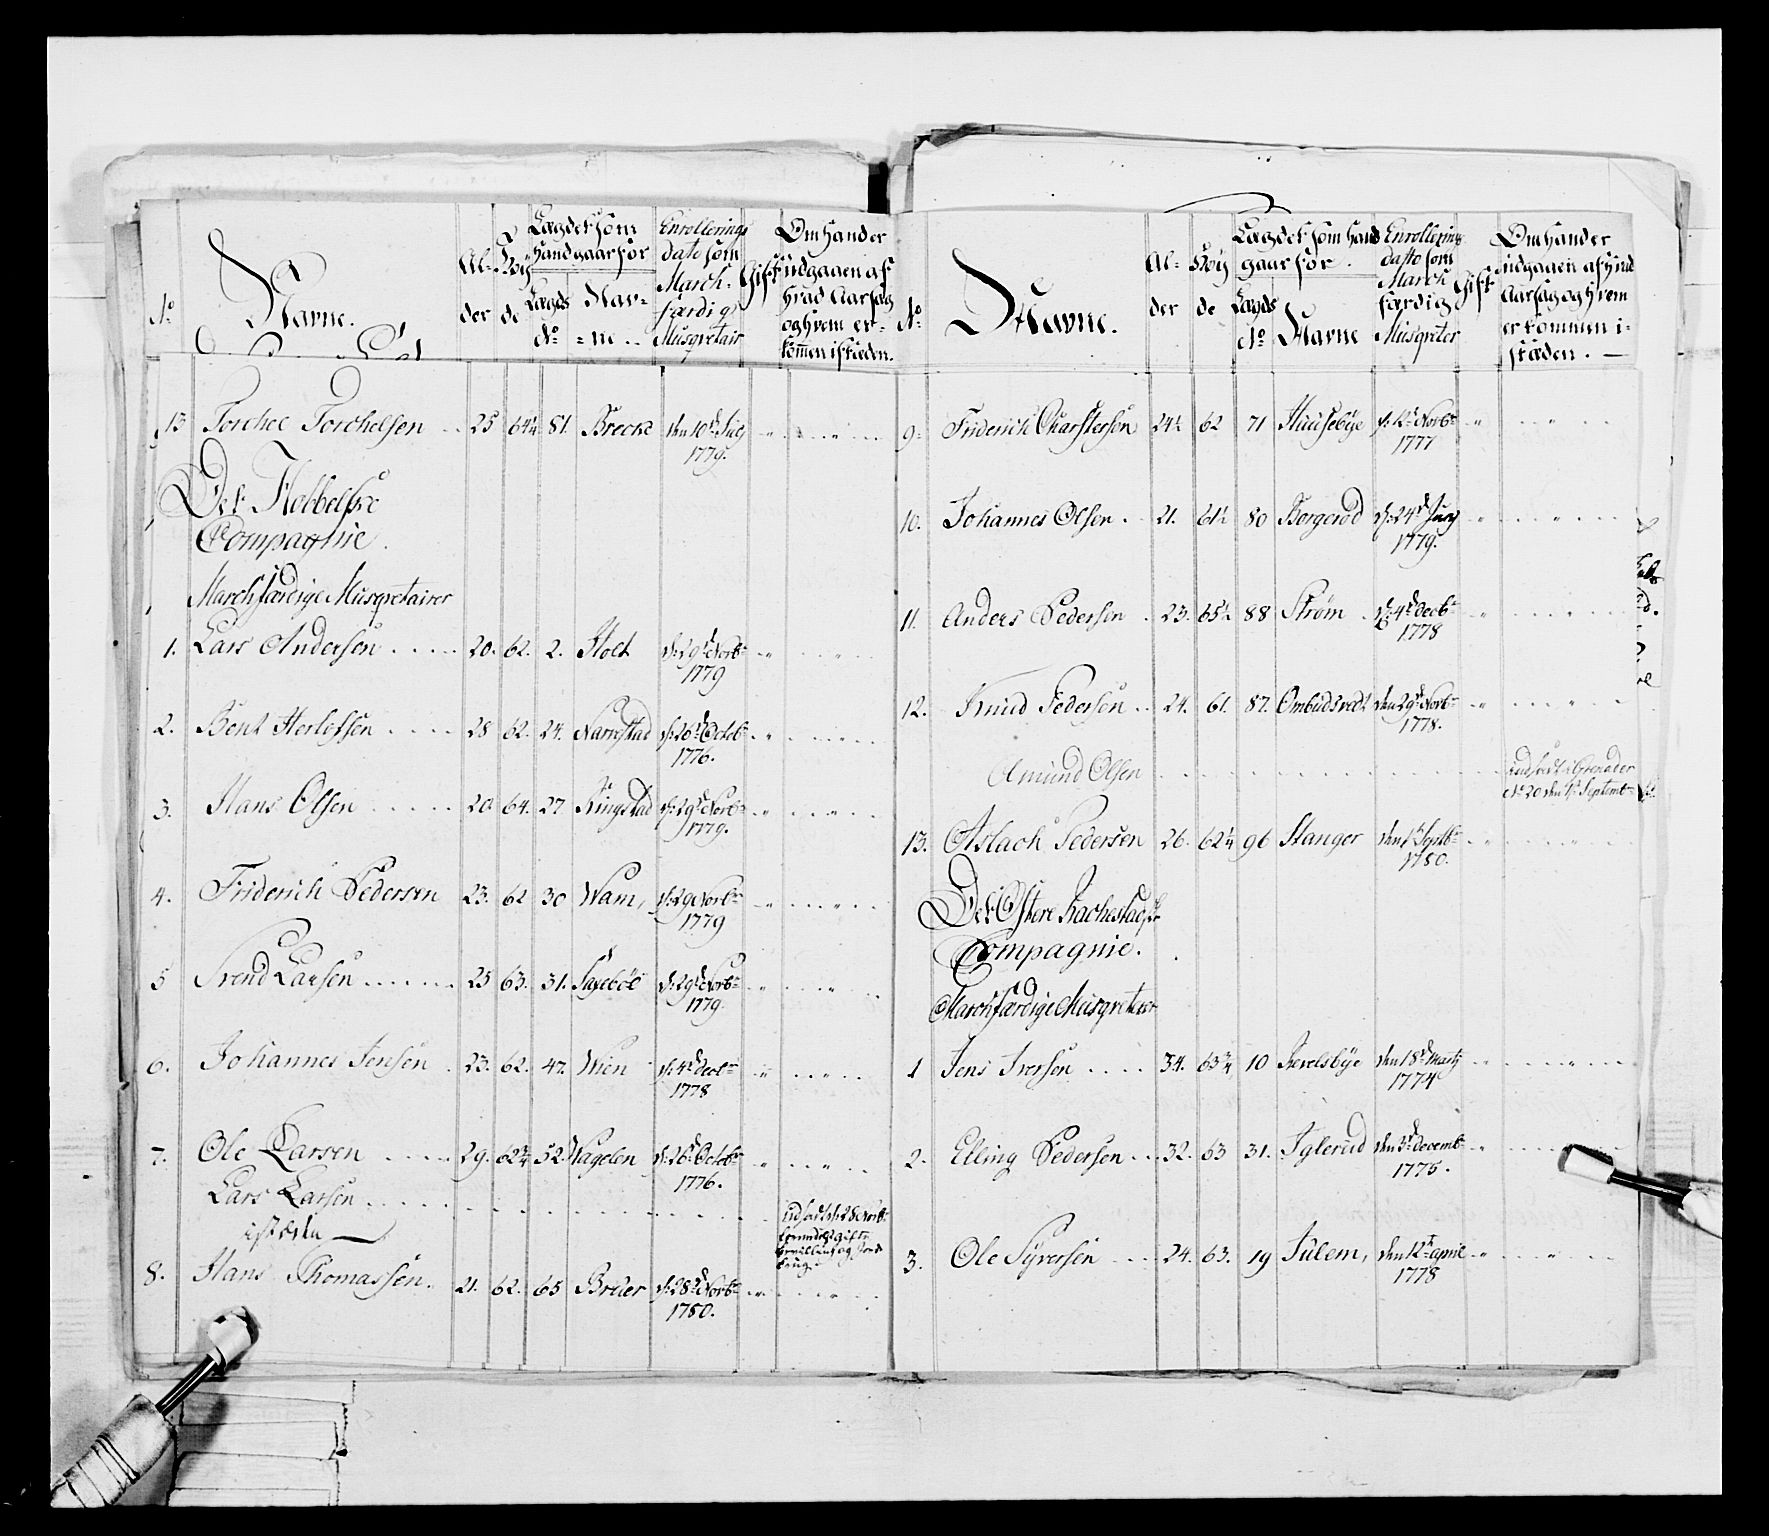 No. Navne. Al-der Høy de Lægdet som hand gaar for Lægds No. Nav-ne Enrollerings dato som March-færdig Musqvetair Gift Om hand er udgaaen af hvad Aarsag og hvem er kommen i stæden.
13 Torchel Torchelsen 25 64¼ 81. Brecke den 10de July 1779.
Det Hobbelske
Compagnie.
Marchfærdige Musqvetairer
1. Lars Andersen 20. 62. 2. Holt d: 29de Novbr 1779
2. Bent Herlofsen 28 62. 24. Narvestad d: 26de Octobr 1776.
3. Hans Olsen 20 64. 27. Ringstad d: 29de Novbr 1779.
4. Friderich Pedersen 23. 62 30 Wam, d: 29 Novbr 1779
5 Svend Larsen 25 63. 31. Saxebøl d: 29de Novbr 1779.
6. Johannes Jensen 23. 62. 47. Wien d: 4de Decbr 1778
7. Ole Larsen 29. 62¾ 52. Wagelen d: 26de Octobr 1776.
Lars Larsen udsadt d: 28 Novbr formedelst gifte
i stæden
8. Hans Thomassen. 21. 62. 65 Bruer d: 28de Novbr 1780.
No. Navne. Al-der Høy de Lægdet som hand gaar for. Lægds No. Navne Enrollerings dato som March færdig Musqveter Gift Om hand er udgaaen af hvad Aarsag og hvem er kommen i stæden.
9. Friderich Charstersen 24½ 62 71 Huusebye d: 12te Novbr 1777
10. Johannes Olsen 21. 61½ 80 Borgerød d: 24de Juny 1779.
11. Anders Pedersen 23. 65½ 88 Strøm d: 4de Decbr 1778
12. Knud Pedersen 24. 61. 87. Ombudsvedt den 29de Novbr 1778.
Amund Olsen udsadt Grenader No 20 den 1te Septembr
13. Aslach Pedersen 26. 62¼ 96 Stanger den 1te Septbr 1780.
Det Østere Rachestadske
Compagnie.
Marchfærdige Musqveterer
1 Jens Iversen 34. 63¾ 10 Revelsbye den 18de Marty 1774
2. Elling Pedersen 32. 63 31. Iglerud den 3de Decembr 1775.
3. Ole Syversen 24. 63. 19 Julem, den 12te april 1778